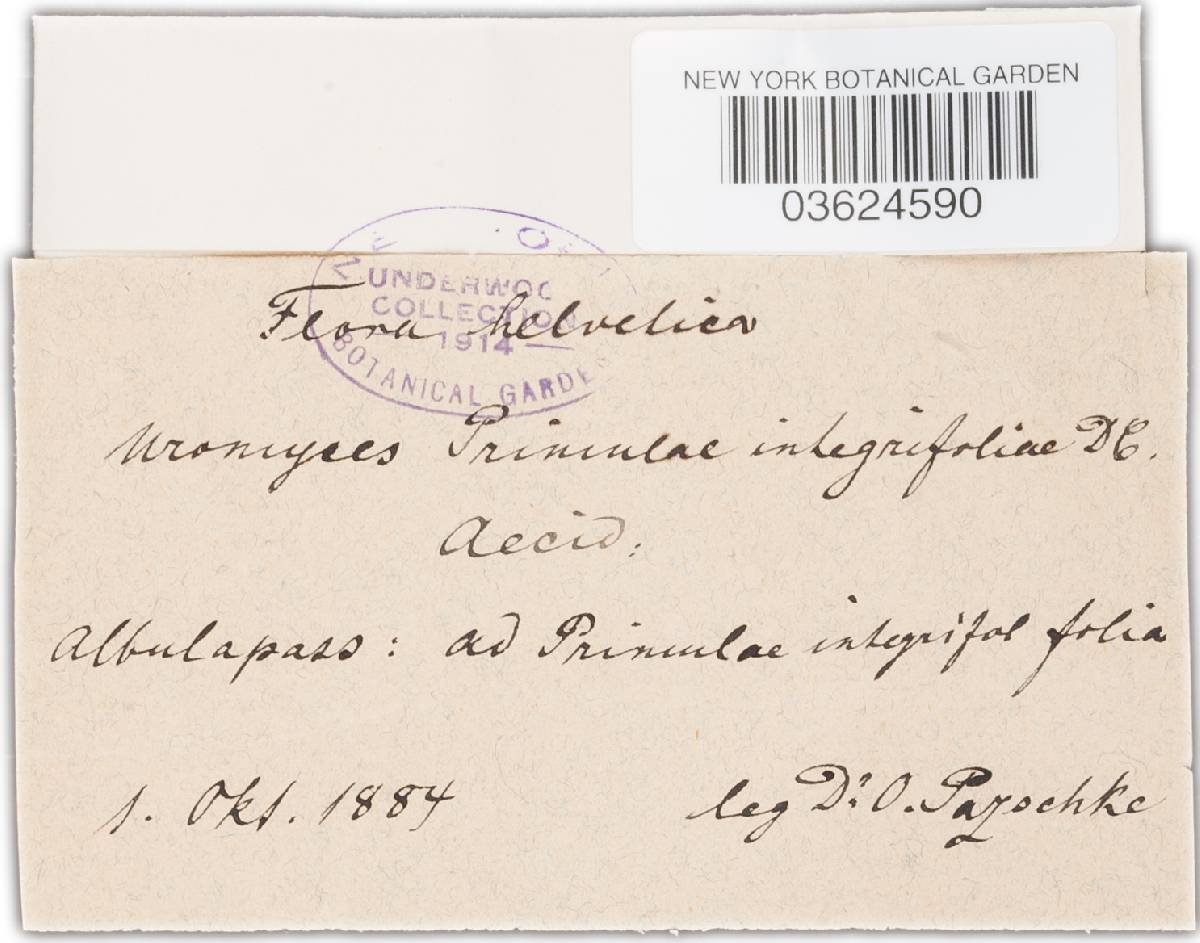 NEW YORK BOTANICAL GARDEN
03624590
UNDERWOO
COLLECTION
1914
BOTANICAL GARDE
Flora helvetica
Uromyces Primulae integrifoliae DC.
Aecid.
Albulapass: ad Primulae integrifol folia
1. Okt. 1884
leg Dr. O. Pazschke